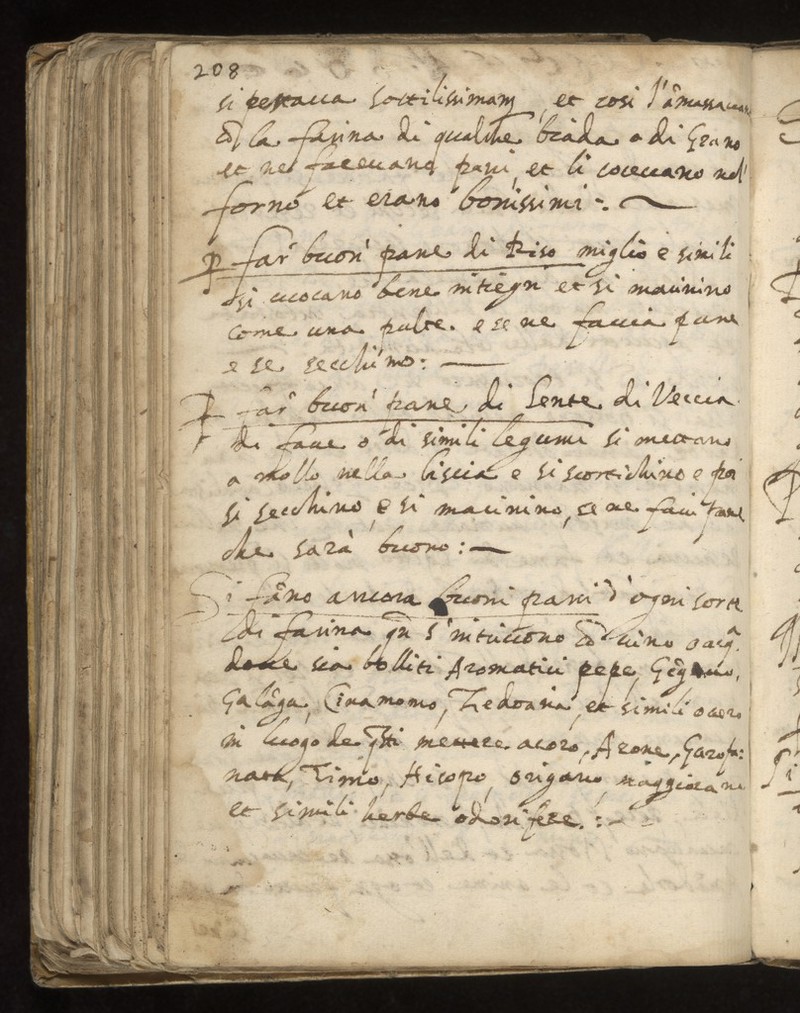 208
si pestaua sottilissimam, et cosi l'amassauano
cõ la farina di qualche biada o di Grano
et ne faceuano pani, et li coceuano nel
forno et erano bonissimi :~
P far buon pane di Riso miglio e simili
si cuocano bene intiegri et si macinino
come una pulte. e se ne faccia pane
e se secchino : —
P far buon pane di Lente di Veccia
di faue o di simili legumi si mettano
a mollo nella liscia e si scortichino e poi
si secchino e si macinino, se ne facci pane
che sarà buono : —
Si fãno ancora buoni pani d'ogni sorte
di farina qñ s'intridono cõ uino o acq.ª
doue sia bolliti Aromatici pepe,
Galãga, Cinamomo, Zedoaria, et simili ouero
in luogo de q̃sti mettere acoro, Arone, Garofa:
nata, Timo, Hisopo, origano, maggiorane
et simili herbe odorifere. : ~